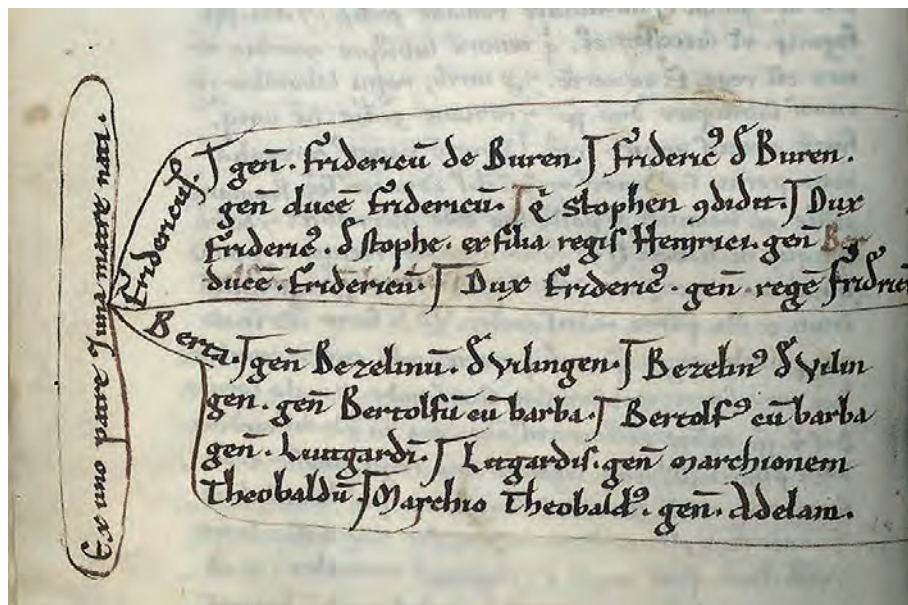 Ex uno patre ⁊ una matre nati.
Fridericus.
⁊ geñ. fridericū de Buren. ⁊ frideric⁹ đ Buren.
geñ ducē fridericū. ⁊ q̄ Stophen ꝯdidit. ⁊ Dux
frideric⁹. đ stophe. ex filia regis Heinrici. geñ
ducē. fridericū. ⁊ Dux frideric⁹. geñ. regē fridricū
Berta. ⁊ geñ Bezelinū. đ vilingen. ⁊ Bezelin⁹ đ vilin
gen. geñ Bertolfū cū barba. ⁊ Bertolf⁹ cū barba
geñ. Luitgardī. ⁊ Litgardis. geñ marchionem
Theobaldū. ⁊ Marchio Theobald⁹. geñ. Adelam.